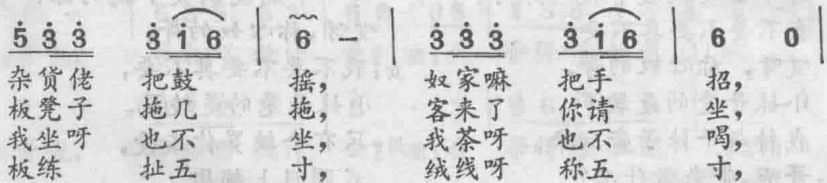 5 3 3 3 1 6 | 6 - | 3 3 3 3 1 6 | 6 0 |
杂货佬 把鼓 摇， 奴家嘛 把手 招，
板凳子 拖几 拖， 客来了 你请 坐，
我坐呀 也不 坐， 我茶呀 也不 喝，
板练 扯五 寸， 绒线呀 称五 寸，